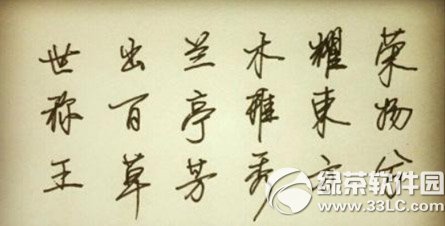 荣
耀東方
木雅秀
兰亭芳
出百草
世称王
绿茶软件园
www.33LC.com